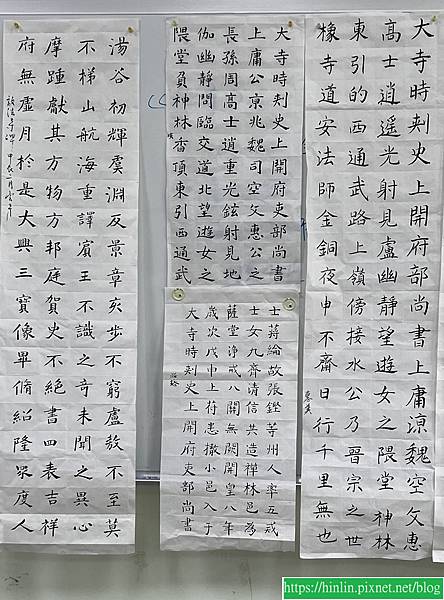 大寺時刾史上開府吏部尚書上庸凉魏空文惠
高士逍遥光射見盧幽靜望遊女之隈堂神林
東引的西通武路上嶺傍接水公乃晉宗之世
橡寺道安法師金銅夜申不齋日行千里無也
大寺時刾史上開府吏部尚書
上庸公京兆魏司空文惠公之
長孫周高士逍重光鉉射見地
伽幽靜間臨交道北望遊女之
隈堂負神林香頂東引西通武
士蔣綸故張鏗等州人率五戒
士女九齊清信共造禅林邑為
薩堂淨戒八關無闕開皇八年
歲次戊申上荷恚撤小邑入于
大寺時刾史上開府吏部尚書
湯谷初輝虞淵反景章亥步不窮盧敖不至莫
不梯山航海重譯賓王不識之奇未聞之異心
摩踵獻其方物方邦庭賀史不絕書四表吉祥
府無虛月於是大興三寶像畢脩紹隆眾度人
啟法寺碑
https://hinlin.pixnet.net/blog